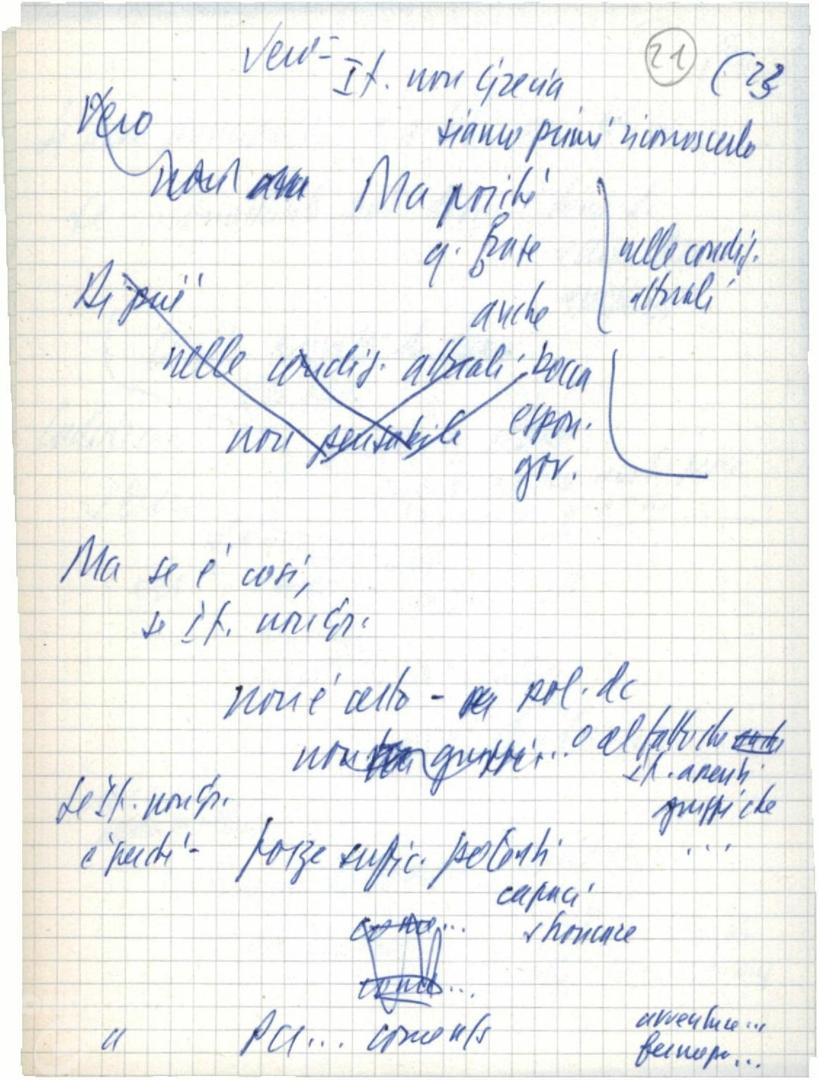 21 (23
Vero - It. non Grecia
siamo primi riconoscerlo
Vero
Ma poiché
q. frase
anche
nelle condiz.
attuali
Di più
nelle condiz. attuali bocca
non pensabile espon.
gov.
Ma se è così,
se It. non Gr.
non è certo - pol. dc
non gruppi... o al fatto che
It. assenti
gruppi che
...
Se It. non Gr.
è perché - forze suffic. potenti
capaci
stroncare
come...
come...
" PCI... comunis
avventure...